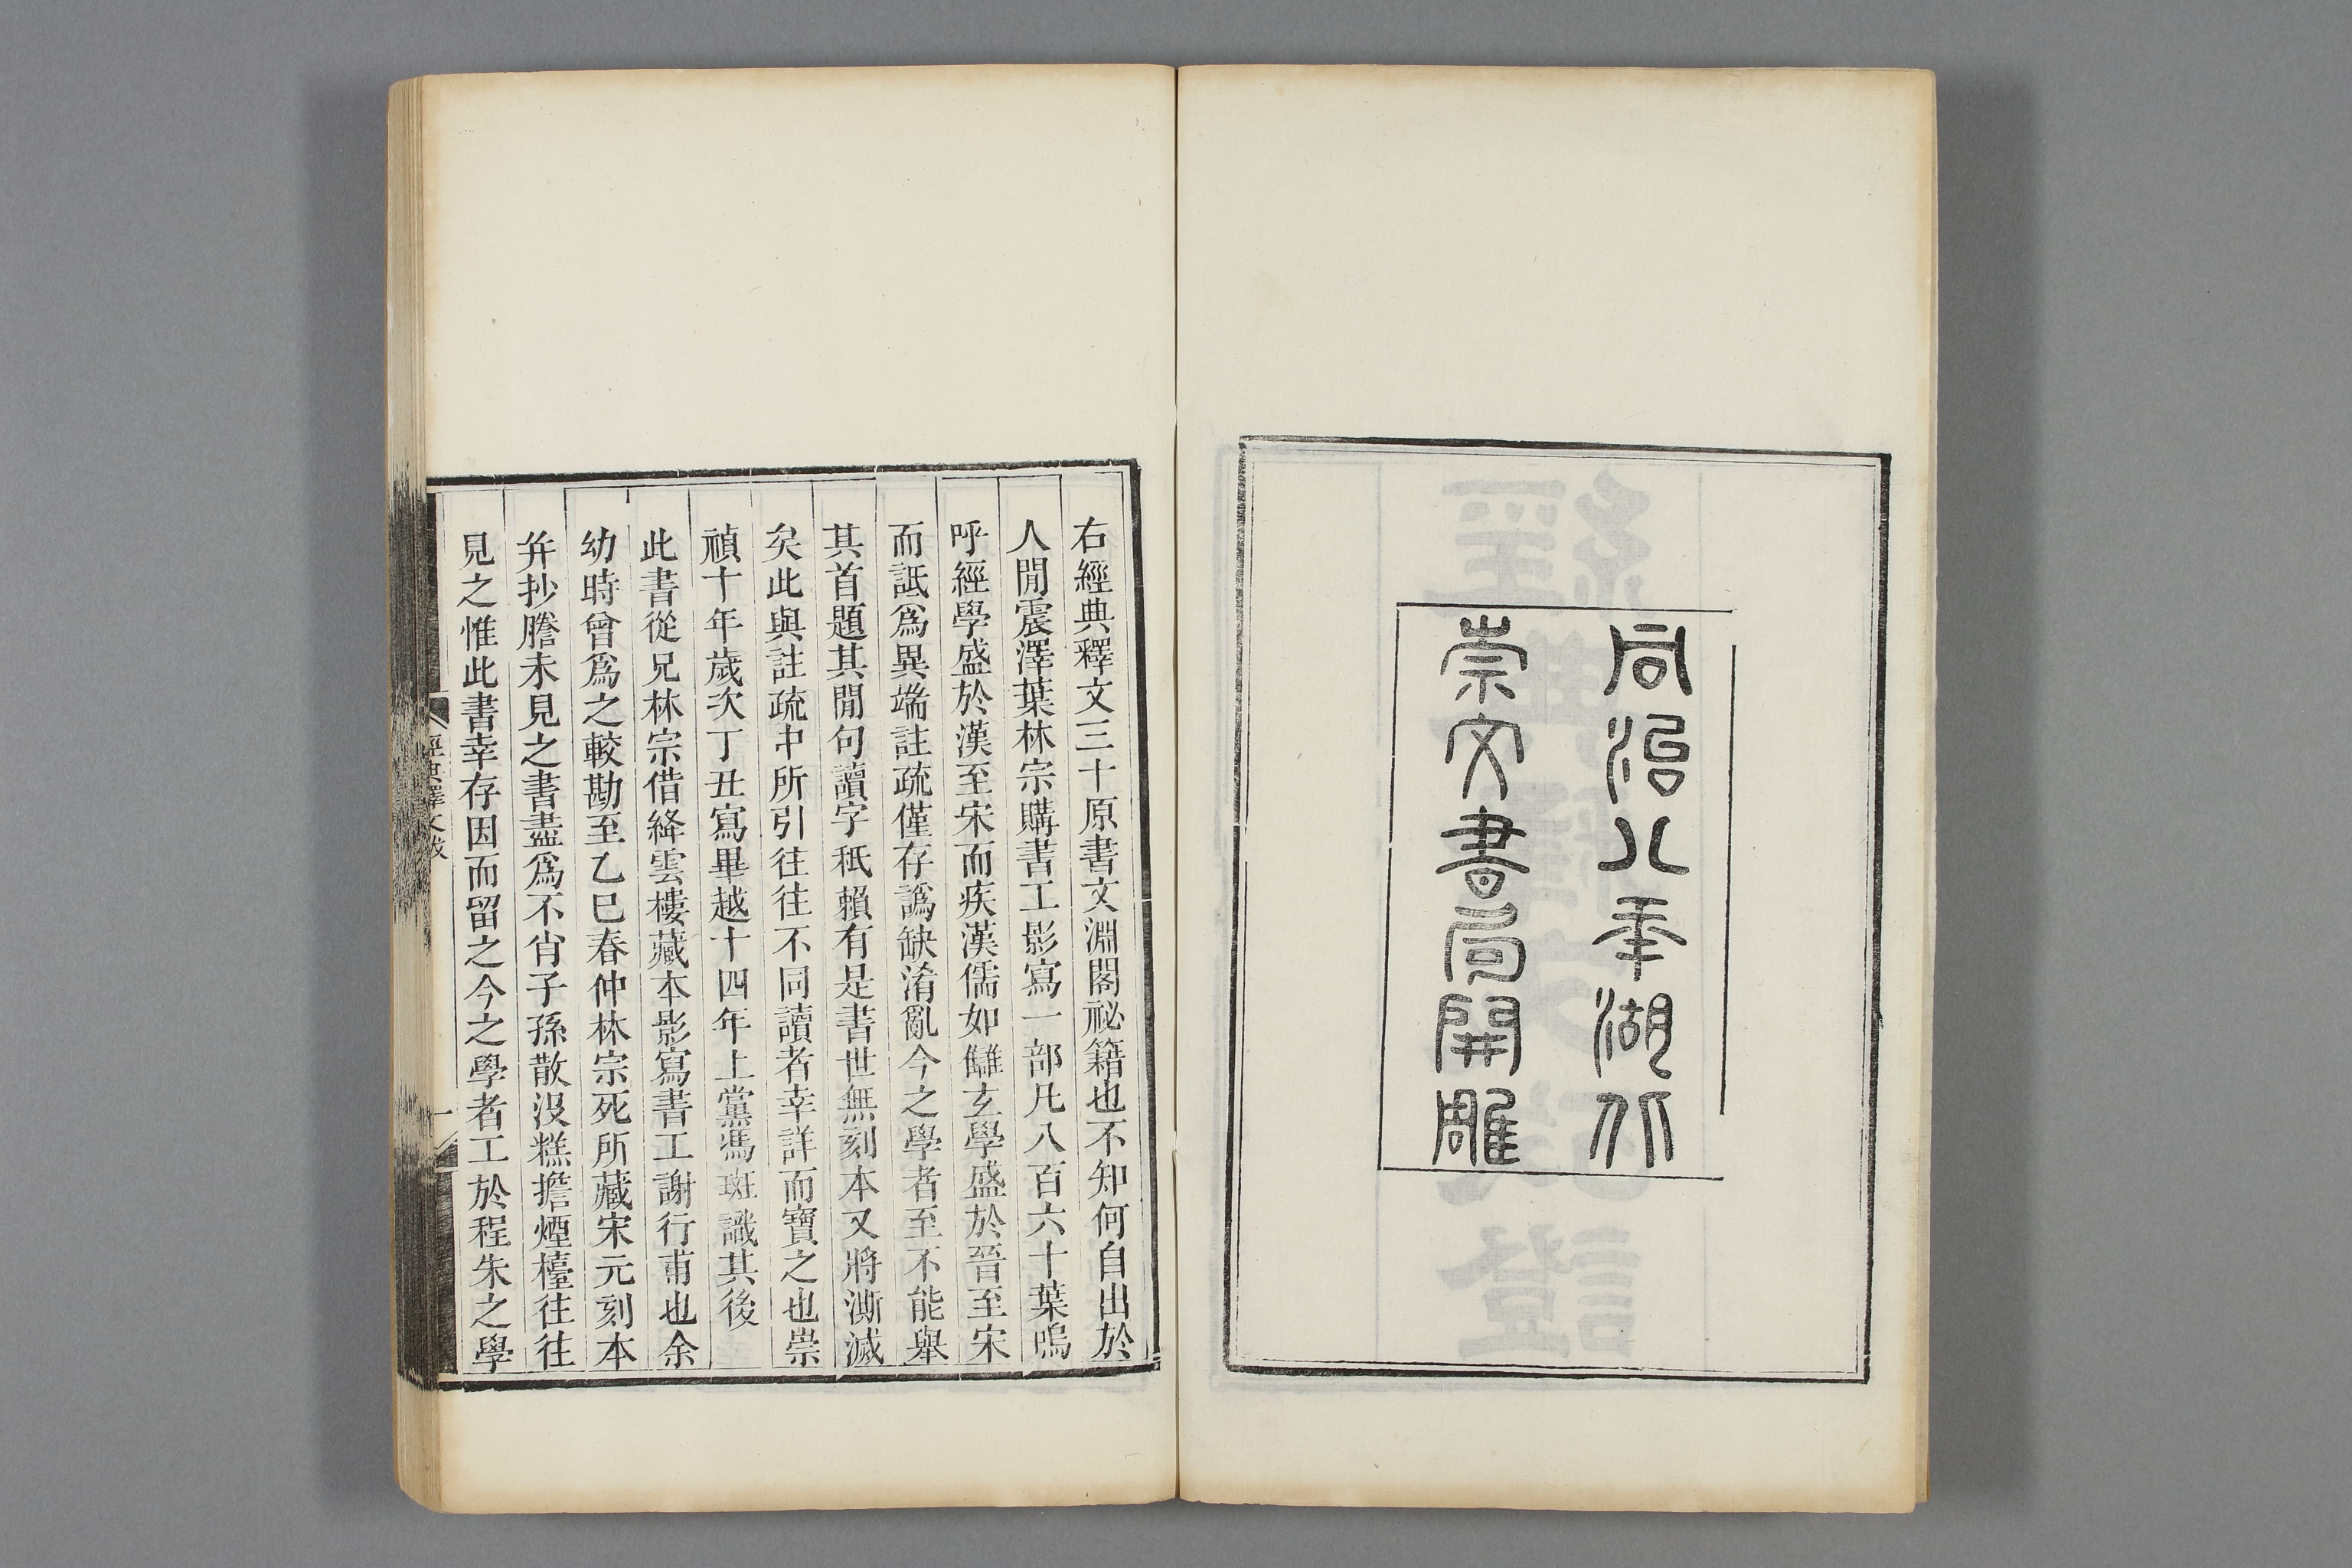 同治八年湖北
崇文書局開雕
右經典釋文三十原書文淵閣祕籍也不知何自出於
人閒震澤葉林宗購書工影寫一部凡八百六十葉嗚
呼經學盛於漢至宋而疾漢儒如讎玄學盛於晉至宋
而詆爲異端註疏僅存譌缺淆亂今之學者至不能舉
其首題其閒句讀字秖賴有是書世無刻本又將澌滅
矣此與註疏中所引往往不同讀者幸詳而寶之也崇
禎十年歲次丁丑寫畢越十四年上黨馮班識其後
此書從兄林宗借絳雲樓藏本影寫書工謝行甫也余
幼時曾爲之較勘至乙巳春仲林宗死所藏宋元刻本
并抄謄未見之書盡爲不肖子孫散沒糕擔煙檯往往
見之惟此書幸存因而留之今之學者工於程朱之學
經典釋文跋
一